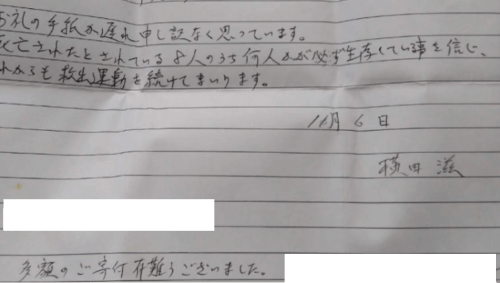 お礼の手紙が遅れ申し訳なく思っています。
死亡されたとされている8人のうち何人かが必ず生存している事を信じ、
れからも救出運動を続けてまいります。
11月6日
横田 滋
多額のご寄付有難うございました。